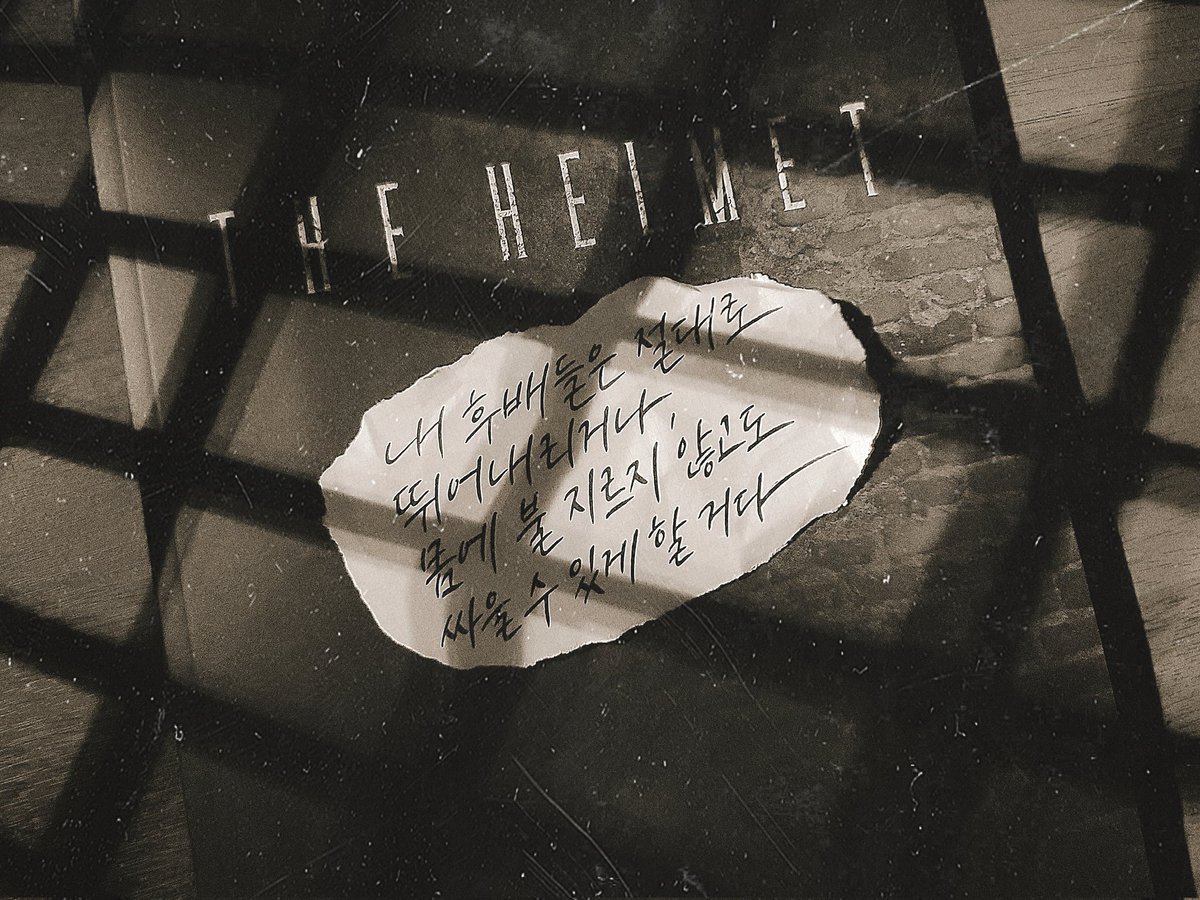 THE HELMET
내 후배들은 절대로
뛰어내리거나,
몸에 불 지르지 않고도
싸울 수 있게 할 거다